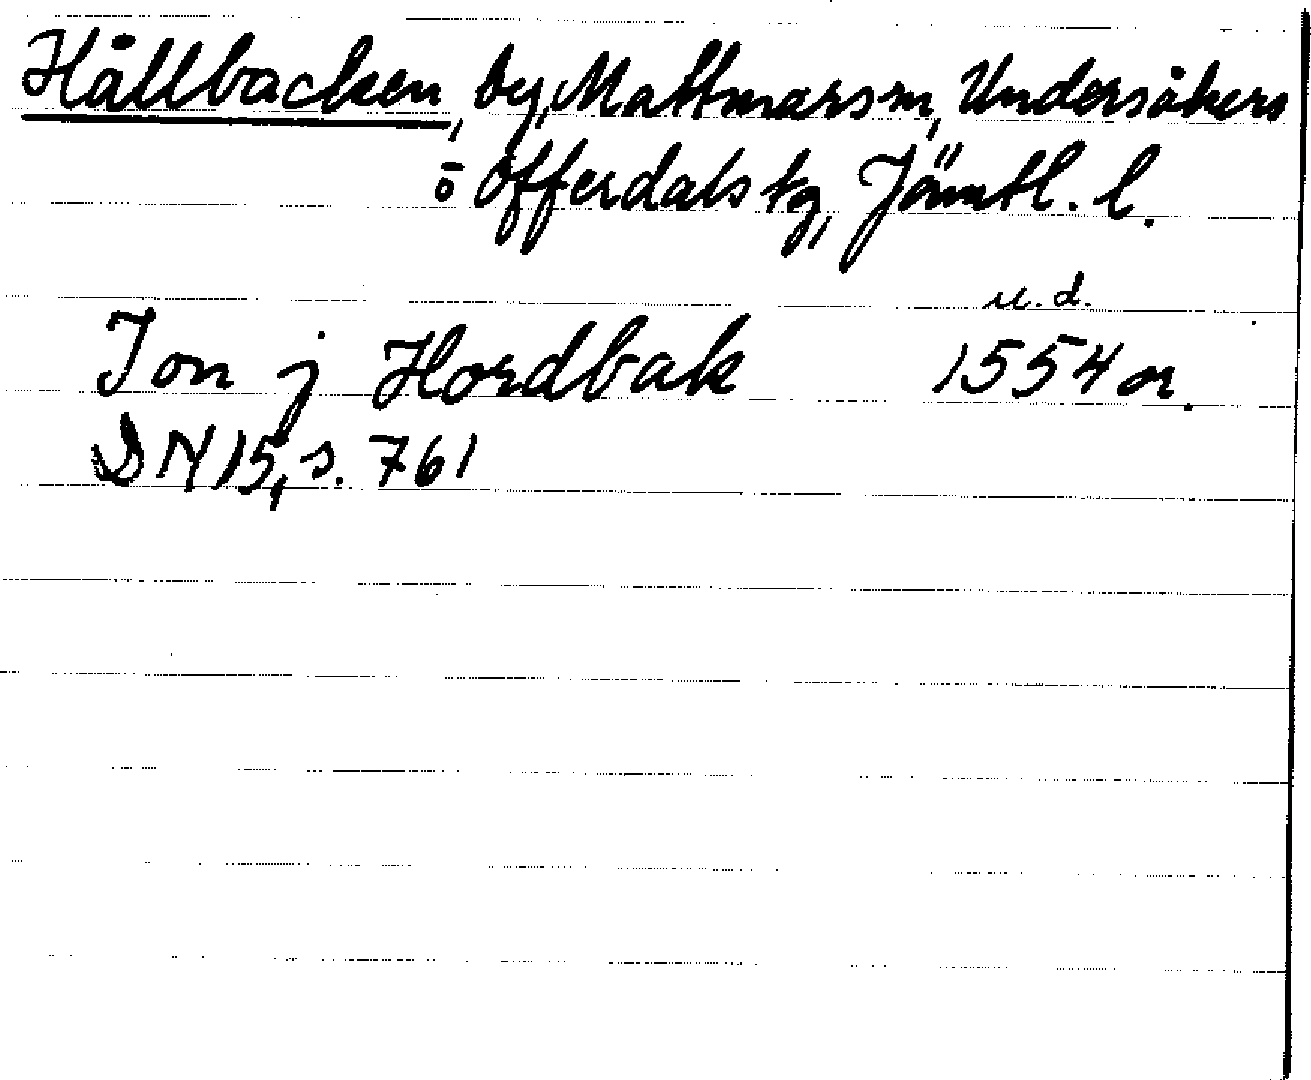 Hållbacken, by, Mattmars sn, Undersåkers
o Offerdals tg, Jämtl. l.
u. d.
Jon j Hordbak 1554 or.
DN 15, s. 761